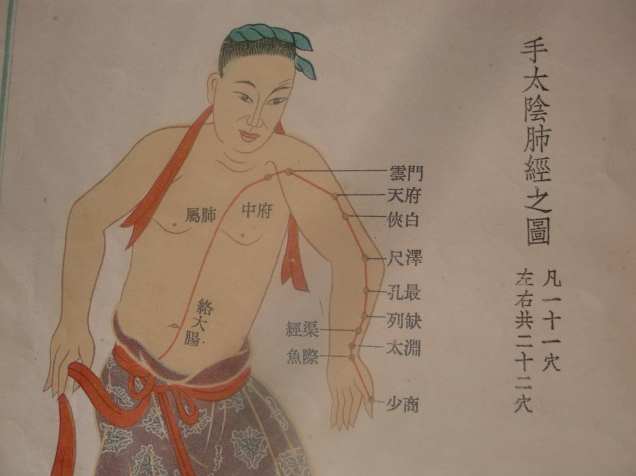 手太陰肺經之圖
凡一十一穴
左右共二十二穴
雲門
天府
俠白
尺澤
孔最
列缺
經渠
太淵
魚際
少商
中府
屬肺
絡大腸